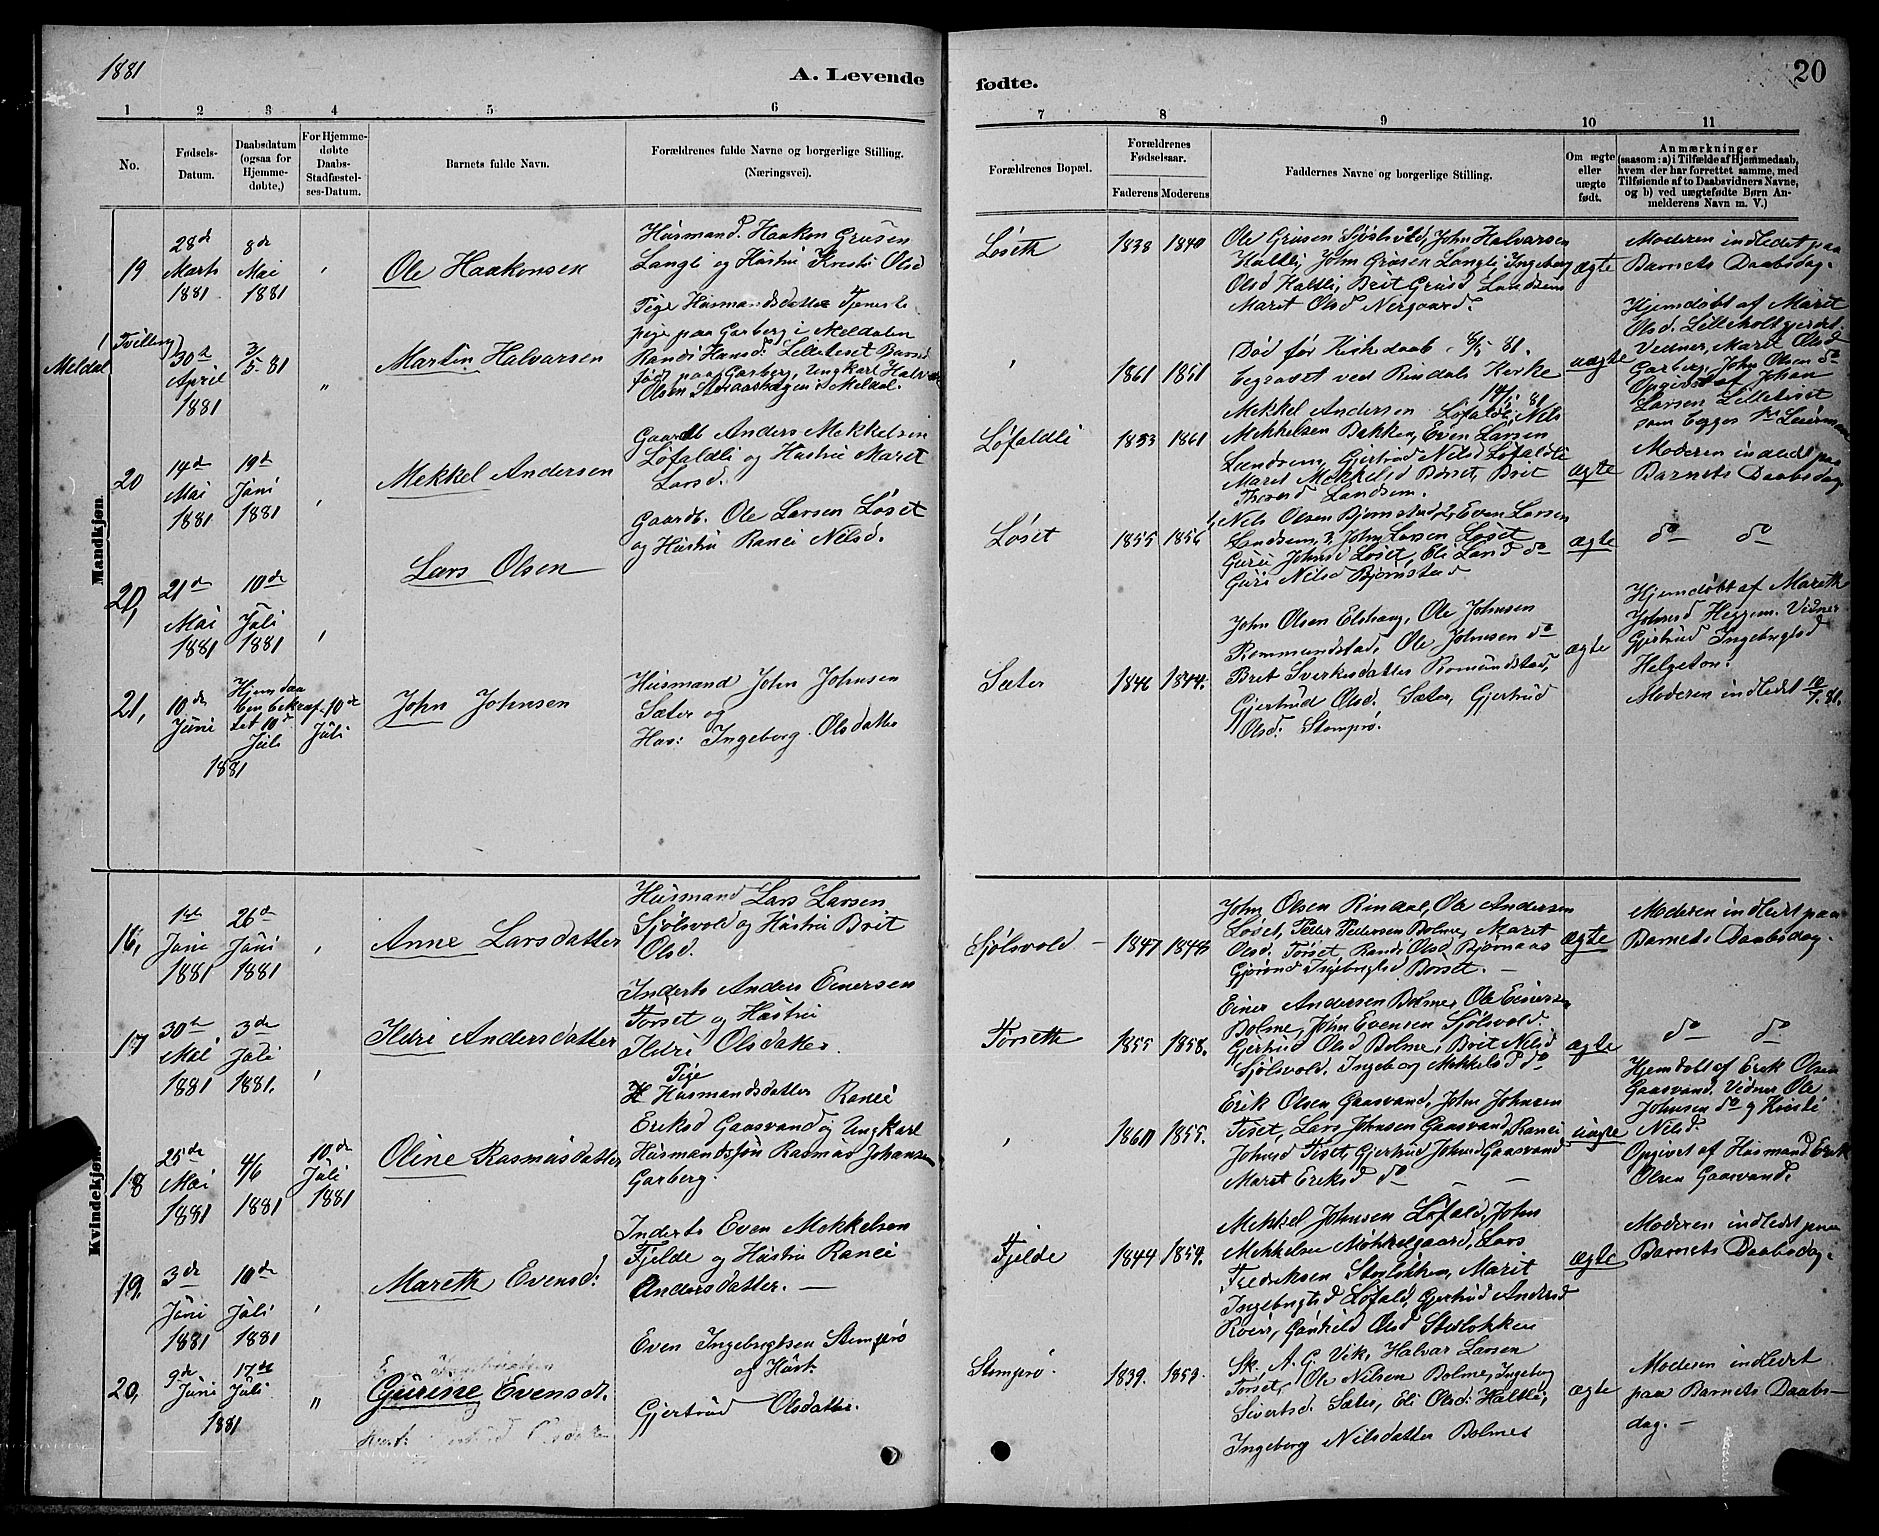 1881
A. Levende
fødte.
20
1 2 3 4 5 6 7 8 9 10 11
No.
Fødsels-
Datum.
Daabsdatum
(ogsaa for
Hjemme-
døbte,)
For Hjemme-
døbte
Daabs-
Stadfæstel-
ses-Datum.
Barnets fulde Navn.
Forældrenes fulde Navne og borgerlige Stilling.
(Næringsvei).
Forældrenes Bopæl.
Forældrenes
Fødselsaar.
Faderens Moderens
Faddernes Navne og borgerlige Stilling.
Om ægte
eller
uægte
født.
Anmærkninger
(saasom: a) i Tilfælde af Hjemmedaab,
hvem der har forrettet samme, med
Tilføiende af to Daabsvidners Navne,
og b) ved uægtefødte Børn An-
melderens Navn m. V.)
Mandkjøn.
19
28de
Marts
1881
8de
Mai
1881
Ole Haakonsen
Husmand. Haaken Grusen
Langli og Hustru Kristi Olsd
Løseth
1838 1840
Ole Grusen Sjølsvold, John Halvarsen
Haltli, John Grusen Langli, Ingeborg
Olsd Haltli, Brit Grusd Landsem
Marit Olsd Nergaard.
ægte
Moderen indledet paa
Barnets Daabsdag.
Meldal
(Tvilling)
30te
April
1881
3/5-81
"
Martin Halvarsen
Pige Husmandsdatter Tjeneste
pige paa Garberg i Meldalen
Randi Hansd: Lilleliset Barnet
født paa Garberg, Ungkarl Halvor
Olsen i Meldal.
1861 1851
Død før Kirkedaab 8/5 81.
begravet ved Rindals Kirke
14/5 81
uægte
Hjemdøbt af Marit
Olsd. Lilleholtgjerdet.
Vidner, Marit Olsd
Garberg, John Olsen do
Opgivet af Johan
Larsen Lilleliset
som begges
20
14de
Mai
1881
19de
Juni
1881
Mekkel Andersen
Gaardb Anders Mekkelsen
Løfaldli og Hustru Marit
Larsd.
Løfaldli
1853 1861
Mekkel Andersen Løfaldli, Nils
Mekkelsen Bakken, Even Larsen
Landsem, Gjertrud Nilsd Løfaldli
Marit Mekkelsd Børset, Brit
Landsem.
ægte
Moderen indledet paa
Barnets Daabsdag
20,
21de
Mai
1881
10de
Juli
1881
Lars Olsen
Gaardb. Ole Larsen Løset
og Hustru Ranei Nilsd.
Løset
1855 1856
1, Nils Olsen Bjørnstad 2, Even Larsen
Landsem, 3, John Larsen Løset
Guru Johnsd Løset, Eli Larsd do
Guri Nilsd Bjørnstad
ægte
do do
21,
10de
Juni
Hjemdaa
ben bekræf-
tet 10de
Juli
1881
10de
Juli
John Johnsen
Husmand John Johnsen
Sæter og
Hus: Ingeborg Olsdatter
Sæter
1846 1844.
John Olsen Elshaug, Ole Johnsen
Rommundstad, Ole Johnsen do
Bret Sverkesdatter Romundstad,
Gjertrud Olsd. Sæter, Gjertrud
Olsd: Stomprø.
ægte
Hjemdøbt af Mareth
Johnsd Heggem. Vidner
Gjertrud Ingebrigtsd
Helgeton.
Moderen indledt 10/7. 81.
Kvindekjøn.
16,
1ste
Juni
1881
26de
Juni
1881
Anne Larsdatter
Husmand Lars Larsen
Sjølsvold og Hustru Brit
Olsd.
Sjølsvold
1847 1848
John Olsen Rindal, Ole Andersen
Løset, Peder Pedersen Bolme, Marit
Olsd. Torset, Randi Olsd Bjørnaas
Gjørond Ingebrigtsd Børset.
ægte
Moderen indledt paa
Barnets Daabsdag.
17
30te
Mai
1881
3de
Juli
1881.
Ildri Andersdatter
Inderts Anders Einersen
Torset og Hustru
Ildri Olsdatter.
Torseth
1855 1858.
Einer Andersen Bolme, Ole Einersen
Bolme, John Evensen Sjølsvold.
Gjertrud Olsd Bolme, Brit Nilsd
Sjølsvold, Ingeborg Mekkelsd do
ægte
do do
18
25de
Mai
1881
4/6
1881
10de
Juli
1881
Oline Rasmusdatter
Pige
Husmandsdatter Ranei
Eriksd Gaasvand og Ungkarl
Husmandssøn Rasmus Johansen
Garberg.
1860 1855.
Erik Olsen Gaasvand, John Johnsen
Tiset, Lars Johnsen Gaasvand, Ranei
Johnsd Tiset, Gjertrud Johnsd Gaasvand
Maret Eriksd do
uægte
Hjemdøbt af Erik Olsen
Gaasvand. Vidner Ole
Johnsen do og Kristi
Nilsd.
Opgivet af Husmand Erik
Olsen Gaasvand.
19.
3de
Juni
1881
10de
Juli
1881
Mareth Evensd:
Inderts Even Mekkelsen
Fjelde og Hustru Ranei
Andersdatter.
Fjelde
1844 1859.
Mekkel Johnsen Løfald, John
Mekkelsen Møkkelgaard, Lars
Fredriksen Storløkken, Marit
Ingebrigtsd Løfald, Gjertrud Andersd
Gunhild Olsd Storløkken
ægte
Moderen indledt paa
Barnets Daabsdag.
20,
9de
Juni
17de
Juli
1881
"
Gurine Evensdt.
Even Ingebrigtsen Stomprø
og Hust.
Gjertrud Olsdatter.
Stomprø.
1839. 1859.
Sk. A. G. Vik, Halvar Larsen
Torset, Ole Nilsen Bolme, Ingeborg
Sivertsd. Sæter, Eli Olsd: Haltli,
Ingeborg Nilsdatter Bolmes
ægte
Moderen indledt
paa Barnets Daabs-
dag.